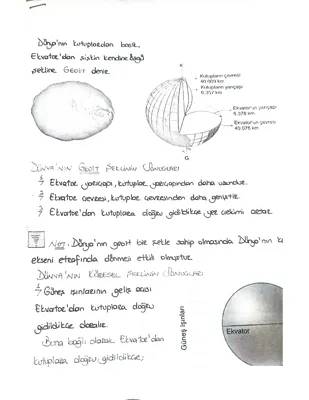 Dünya'nın kutuplardan basık,
Ekvator'dan şişkin kendine özgü
şekline GEOİT denir.
K
Kutupların çevresi
40.009 km
Kutupların yarıçapı
6.357 km
Ekvator'un yarıçapı
6.378 km
Ekvator'un çevresi
40.076 km
G
DÜNYA'NIN GEOİT ŞEKLİNİN SONUÇLARI
1/ Ekvator yarıçapı, kutuplar yarıçapından daha uzundur.
2/ Ekvator çevresi, kutuplar çevresinden daha geniştir.
3/ Ekvator'dan kutuplara doğru gidildikçe yer çekimi artar.
NOT: Dünya'nın geoit bir şekle sahip olmasında Dünya'nın k
ekseni etrafında dönmesi etkili olmuştur.
DÜNYA'NIN KÜRESEL ŞEKLİNİN SONUÇLARI
1/ Güneş ışınlarının geliş açısı
Ekvator'dan kutuplara doğru
gidildikçe daralır.
Buna bağlı olarak Ekvator'dan
kutuplara doğru gidildikçe;
Güneş Işınları
Ekvator